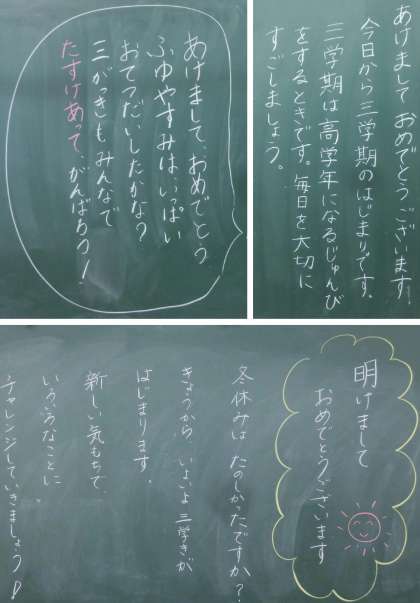 あけまして、おめでとう
ふゆやすみは、いっぱい
おてつだいしたかな?
三がっきも みんなで
たすけあって、がんばろう!
あけまして おめでとうございます
今日から三学期のはじまりです。
三学期は高学年になるじゅんび
をするときです。毎日を大切に
すごしましょう。
明けまして
おめでとうございます
冬休みは たのしかったですか?
きょうから、いよいよ 三学きが
はじまります。
新しい気もちで、
いろいろなことに
チャレンジしていきましょう!